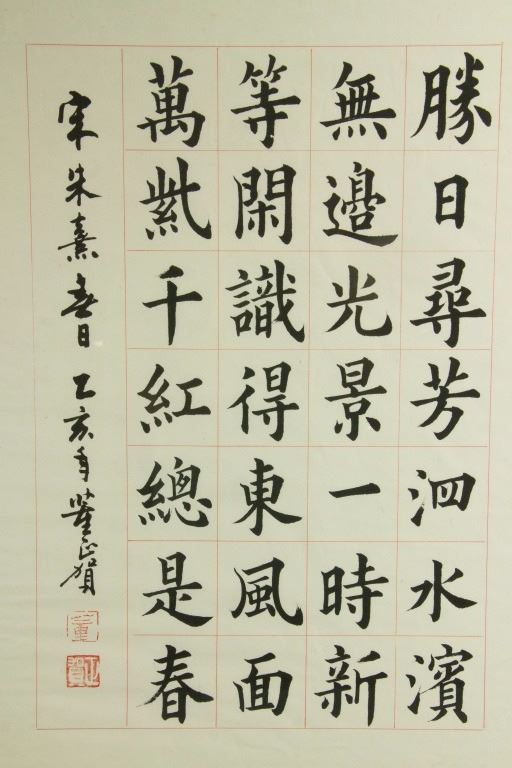 勝日尋芳泗水濱
無邉光景一時新
等閑識得東風面
萬紫千紅總是春
宋朱熹春日乙亥年董正賀
董
正賀